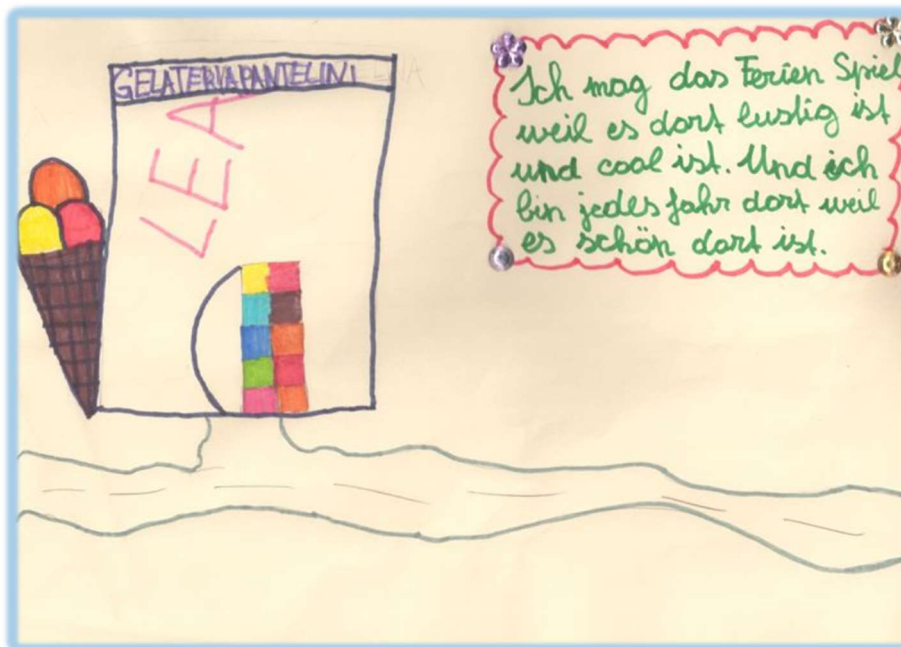 GELATERIAPANTELINI
LEA
Ich mag das Ferien Spiel
weil es dort lustig ist
und cool ist. Und ich
bin jedes Jahr dort weil
es schön dort ist.